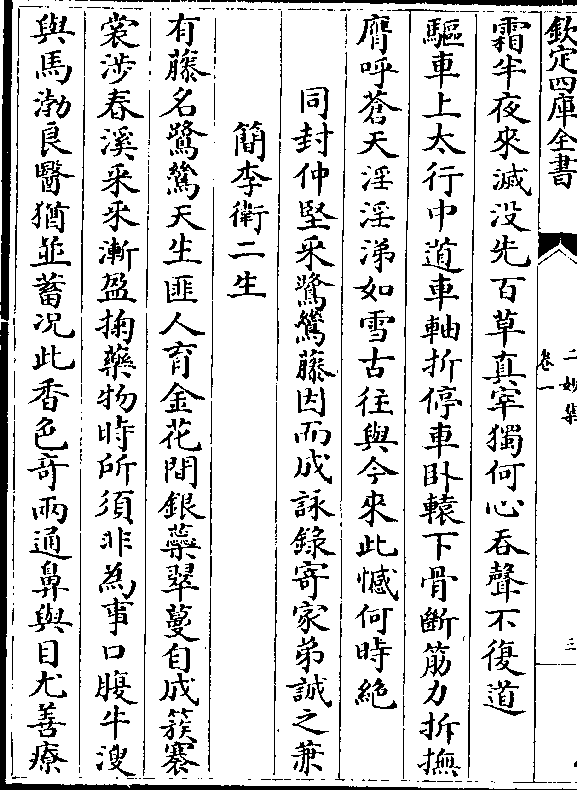 欽定四庫全書
二妙集
卷一
三
霜半夜來滅没先百草真宰獨何心吞聲不復道
驅車上太行中道車軸折停車卧轅下骨斷筋力折撫
膺呼蒼天淫淫涕如雪古往與今來此憾何時絶
同封仲堅采鷺鷥藤因而成詠錄寄家弟誠之兼
簡李衛二生
有藤名鷺鷥天生匪人育金花間銀蘂翠蔓自成簇褰
裳涉春溪采采漸盈掬藥物時所須非為事口腹牛溲
與馬渤良醫猶並蓄况此香色竒兩通鼻與目尤善療